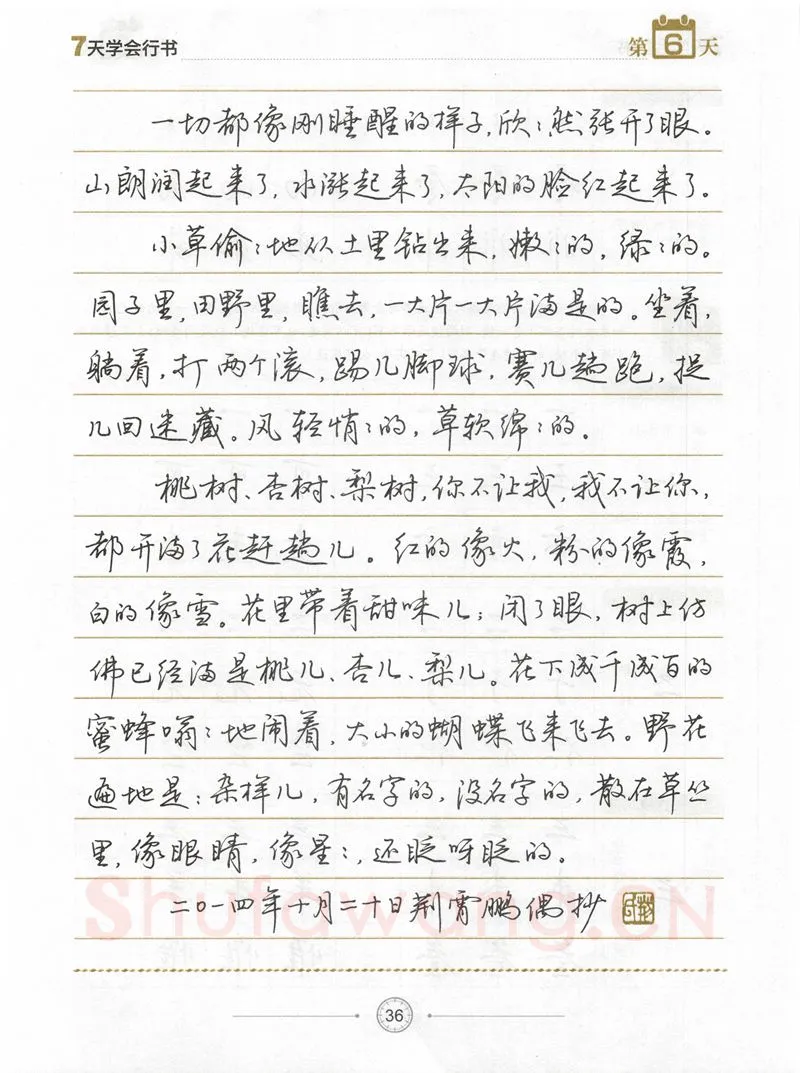 7天学会行书
第6天
一切都像刚睡醒的样子,欣:然张开了眼。
山朗润起来了,水涨起来了,太阳的脸红起来了。
小草偷:地从土里钻出来,嫩:的,绿:的。
园子里,田野里,瞧去,一大片一大片满是的。坐着,
躺着,打两个滚,踢几脚球,赛几趟跑,捉
几回迷藏。风轻悄:的,草软绵:的。
桃树、杏树、梨树,你不让我,我不让你,
都开满了花赶趟儿。红的像火,粉的像霞,
白的像雪。花里带着甜味儿;闭了眼,树上仿
佛已经满是桃儿、杏儿、梨儿。花下成千成百的
蜜蜂嗡:地闹着,大小的蝴蝶飞来飞去。野花
遍地是:杂样儿,有名字的,没名字的,散在草丛
里,像眼睛,像星:,还眨呀眨的。
二〇一四年十月二十日荆霄鹏偶抄
Shufawang.CN
36